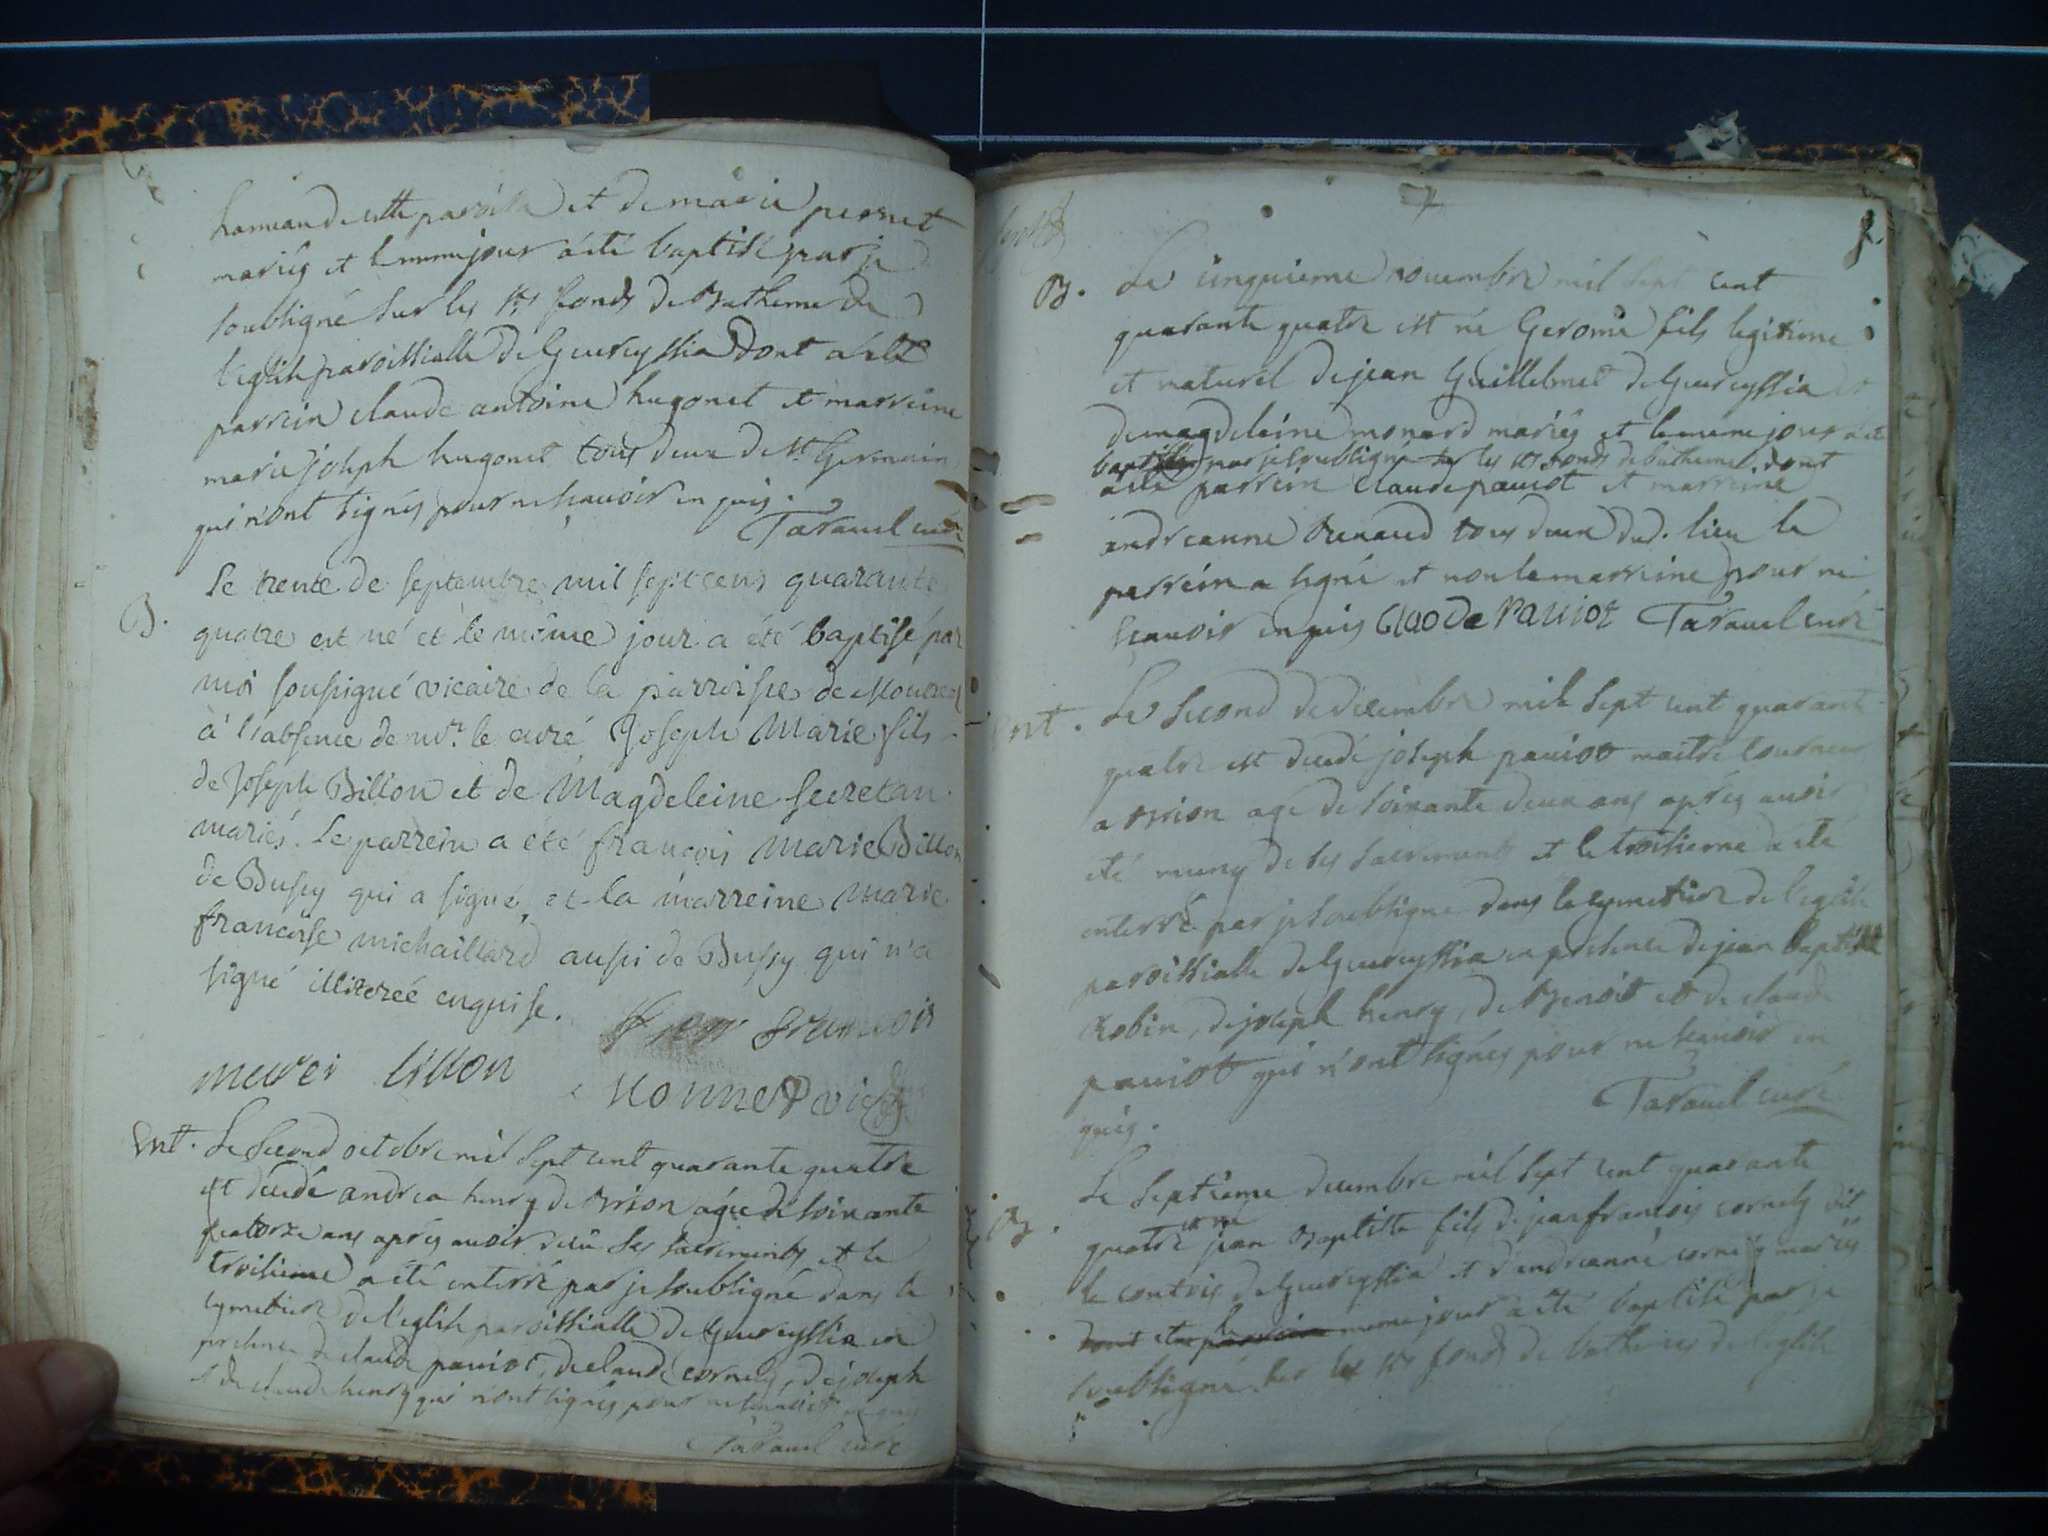 de cette paroisse et de marie pernet
mariés et le meme jour a été baptisé par je
soubsigné sur les sts fonds de Batheme de
l'eglise paroissialle de Geureyssia dont a été
parrein claude antoine hugonet et marreine
marie joseph hugonet tous deux de st Germain
qui n'ont signés pour ne sçauoir enquis.
Tarauel curé
B. Le trente de septembre mil sept cens quarante
quatre est né et le même jour a été baptisé par
moi soussigné vicaire de la parroisse de
à l'absence de mr. le curé Joseph Marie fils
de Joseph Billon et de Magdeleine Secretan
mariés. Le parrein a été françois Marie Billon
de Bussy qui a signé et la marreine Marie
françoise michaillard aussi de Bussy qui n'a
signé illiterée enquise.
francois
Billon
Monnet vic
Ent. Le second octobre mil sept cent quarante quatre
est decedé andrea henry de Orion agée de soixante
quatorze ans aprés auoir reçu ses sacrements et le
troisieme a été enterré par je soubsigné dans le
cymetiere de l'eglise paroissialle de Geureyssia en
presence de claude pauiot, de claude cornely, de joseph
et de claude henry qui n'ont signés pour ne sçauoir enquis
Tarauel curé
B. Le cinquieme nouembre mil sept cent
quarante quatre est né Gerome fils legitime
et naturel de jean Guillelmet de Geureyssia et
de magdeleine monard mariés et le meme jour a été
baptisé par je soubsigné sur les sts fonds de batheme dont
a été parrein Claude pauiot et marreine
andreanne Renaud tous deux dud. lieu le
parrein a signé et non la marreine pour ne
sçauoir enquis Claode Pauiot Tarauel curé
Ent. Le second de decembre mil sept cent quarante
quatre est decedé joseph pauiot maitre tourneur
a Orion agé de soixante deux ans aprés auoir
été muny de ses sacrements et le troisieme a été
enterré par je soubsigné dans le cymetiere de l'eglise
paroissialle de Geureyssia en presence de jean baptiste
Robin, de joseph henry, de Benoit et de claude
pauiot qui n'ont signés pour ne sçauoir en
quis.
Tarauel curé
B. Le septieme decembre mil sept cent quarante
quatre est né jean Baptiste fils de jean francois cornely dit
le contois de Geureyssia et d'andreanne cornely mariés
dont et le meme jour a été baptisé par je
soubsigné sur les sts fonds de bathemes de l'eglise